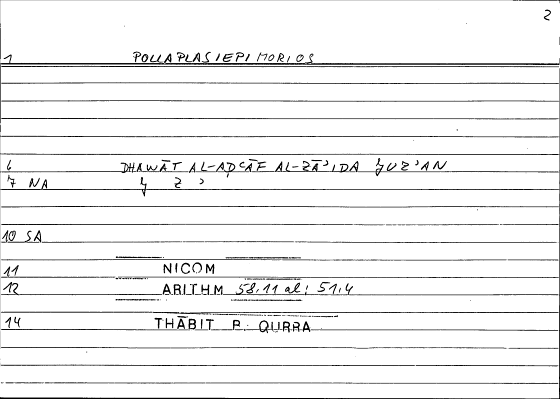 2
1 POLLAPLASIEPIMORIOS
6 DHAWĀT AL-AḌʿĀF AL-ZĀʾIDA ǦUZʾAN
7 NA ǧ z ʾ
10 SA
11 NICOM
12 ARITHM 58,11 al; 51,4
14 THĀBIT B. QURRA